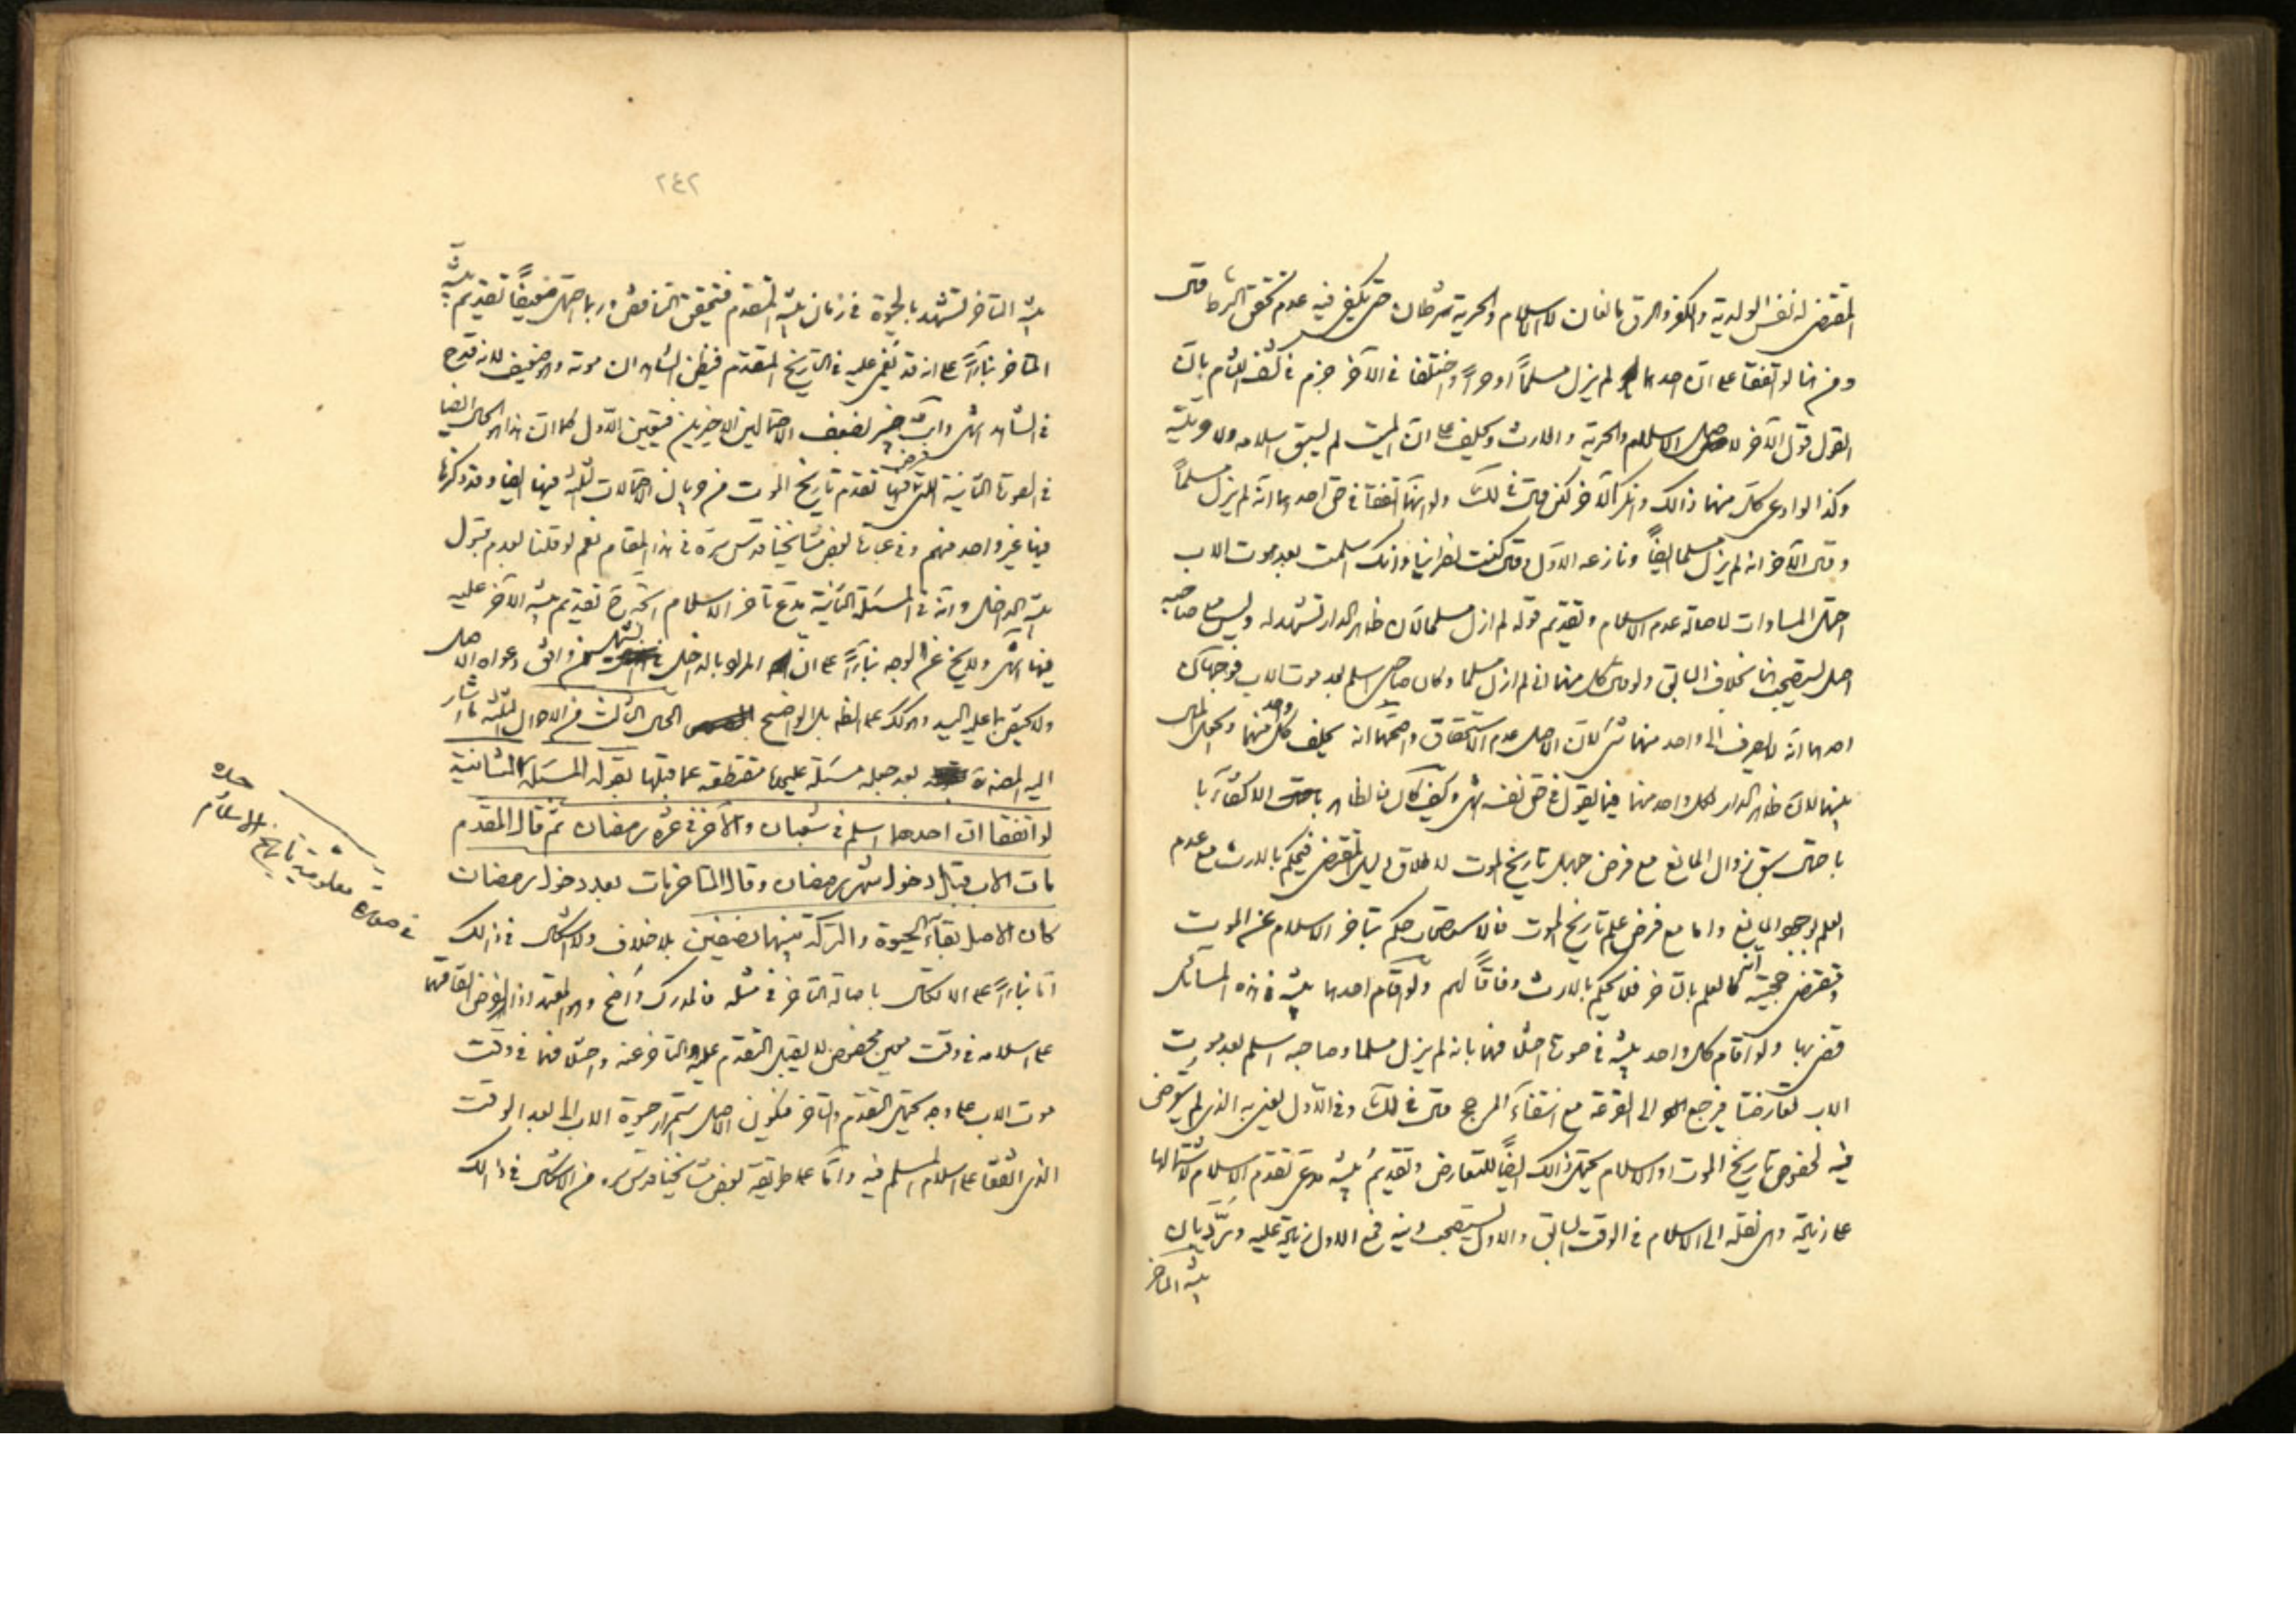 المقتضى له نفس الولدية والكفر والرق مانعان لا الاسلام والحرية شرطان حتى يكفى فيه عدم تحقق الشرط قال
ومن هنا لو اتفقا على ان احدهما لم يزل مسلماً او حراً واختلفا في الآخر جزم في كشف اللثام بان
القول قول الآخر لاصل الاسلام والحرية والارث ويحلف على ان الميت لم يسبق اسلامه ولا حريته
وكذا لو ادعى كل منهما ذالك وانكر الآخر لكن قال في لك ولو انهما اتفقا في حق احدهما انه لم يزل مسلماً
وقال الآخر انه لم يزل مسلما ايضاً ونازعه الاول وقال كنت نصرانيا وانك اسلمت بعد موت الاب
احتمل المساوات لاصالة عدم الاسلام وتقديم قوله لم ازل مسلما لان ظاهر الدار تشهد له وليس مع صاحبه
اصل يستصحب هنا بخلاف السابق ولو قال كل منهما اني لم ازل مسلما وكان صاحبي اسلم بعد موت الاب فوجهان
احدهما انه لا يصرف الى واحد منهما شيء لان الاصل عدم الاستحقاق واصحهما انه يحلف كل واحد منهما ويجعل المال
بينهما لان ظاهر الدار لكل واحد منهما فيما يقول في حق نفسه انتهى وكيف كان فالظاهر الاكتفاء
باحتمال سبق زوال المانع مع فرض جهل تاريخ الموت لاطلاق دليل المقتضى فيحكم بالارث مع عدم
العلم بوجود المانع واما مع فرض علم تاريخ الموت فالاستصحاب حكم بتاخر الاسلام عن الموت
ومقتضى حجيته انه كالعلم بالتاخر فلا يحكم بالارث وفاقاً لهم ولو اقام احدهما بينة في هذه المسائل
قضى بها ولو اقام كل واحد بينة في صورة اختلافهما بانه لم يزل مسلما وصاحبه اسلم بعد موت
الاب تعارضتا فيرجع الى القرعة مع انتفاء المرجح قال في لك وفي الاول يعني به الذي لم يتعرض
فيه لخصوص تاريخ الموت او الاسلام يحتمل ذالك ايضاً للتعارض وتقديم بينة مدعي تقدم الاسلام لاشتمالها
على زيادة وهي نقله الى الاسلام في الوقت السابق والاول يستصحب دينه فمع الاول زيادة عليه وردّ بان
بينة المتاخر
٢٤٢
بينة المتاخر تشهد بالحيوة في زمان بينة المتقدم فتحقق التناقض وربما احتمل ضعيفاً تقديم بينة
المتاخر بناءً على انه قد يغمى عليه في التاريخ المتقدم فيظن الشاهدان موته وهو ضعيف لانه قدح
في الشاهد انتهى وانت خبير بضعف الاحتمالين الاخيرين فتعين الاول كما ان هذا هو الحال ايضا
في الصورة الثانية التي فرض فيها تقدم تاريخ الموت من جريان الاحتمالات الثلثة فيها ايضا وقد ذكرها
فيها غير واحد منهم وفي عبارة بعض مشايخنا قدس سره في هذا المقام نعم لو قلنا بعدم قبول
بينة الداخل وانه في المسئلة الثانية مدعي تاخر الاسلام اتجه ح تقديم بينة الآخر عليه
فيها انتهى ولا يخلو عن الوجه بناءً على ان المراد بالداخل من وافق دعواه الاصل
ولا يختص بما عليه اليد وهو كك على الظاهر بل الواضح الحال الثالث من الاحوال الثلثة ما اشار
اليه المصنف ره بعد جعله مسئلة عليحدة منقطعة عما قبلها بقوله المسئلة الثانية
لو اتفقا ان احدهما اسلم في شعبان والآخر في غرة رمضان ثم قال المتقدم
مات الاب قبل دخول شهر رمضان وقال المتاخر مات بعد دخول رمضان
كان الاصل بقاء الحيوة والتركة بينهما نصفين بلا خلاف ولا اشكال في ذالك
اما بناءً على الاتكال باصالة التاخر في مثله فالمدرك واضح وهو المعتمد اذ المفروض اتفاقهما
على اسلامه في وقت معين مخصوص لا يقبل التقدم عليه والتاخر عنه واختلافهما في وقت
موت الاب على وجه يحتمل التقدم والتاخر فيكون الاصل استمرار حيوة الاب الى بعد الوقت
الذي اتفقا على اسلام المسلم فيه واما على طريقة بعض مشايخنا قدس سره من الاشكال في ذالك
في صورة معلومية تاريخ الاسلام